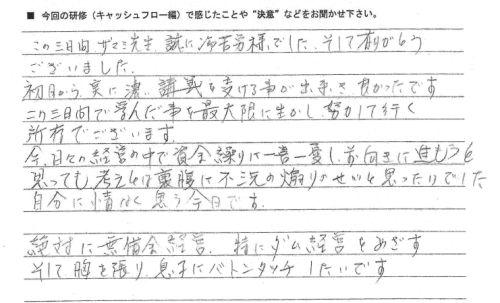 ■ 今回の研修（キャッシュフロー編）で感じたことや“決意”などをお聞かせ下さい。
この三日間 先生、誠に御苦労様でした。そして有りがとう
ございました。
初日から実に濃い講義を受ける事が出来き良かったです
この三日間で学んだ事を最大限に生かし、努力して行く
所存でございます。
今、日々の経営の中で資金繰りに一喜一憂し、前向きに進もうと
思っても考えとは裏腹に不況の煽りのせいと思ったりでした
自分に情なく思う今日です。
絶対に無借金経営、特にダム経営をめざす
そして胸を張り、息子にバトンタッチしたいです